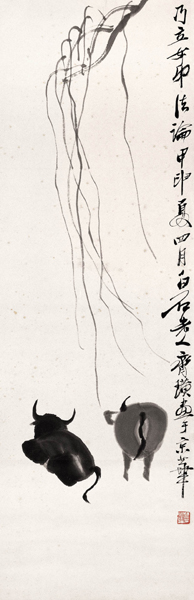 乃立女弟法論甲申夏四月白石老人齊璜畫于京華